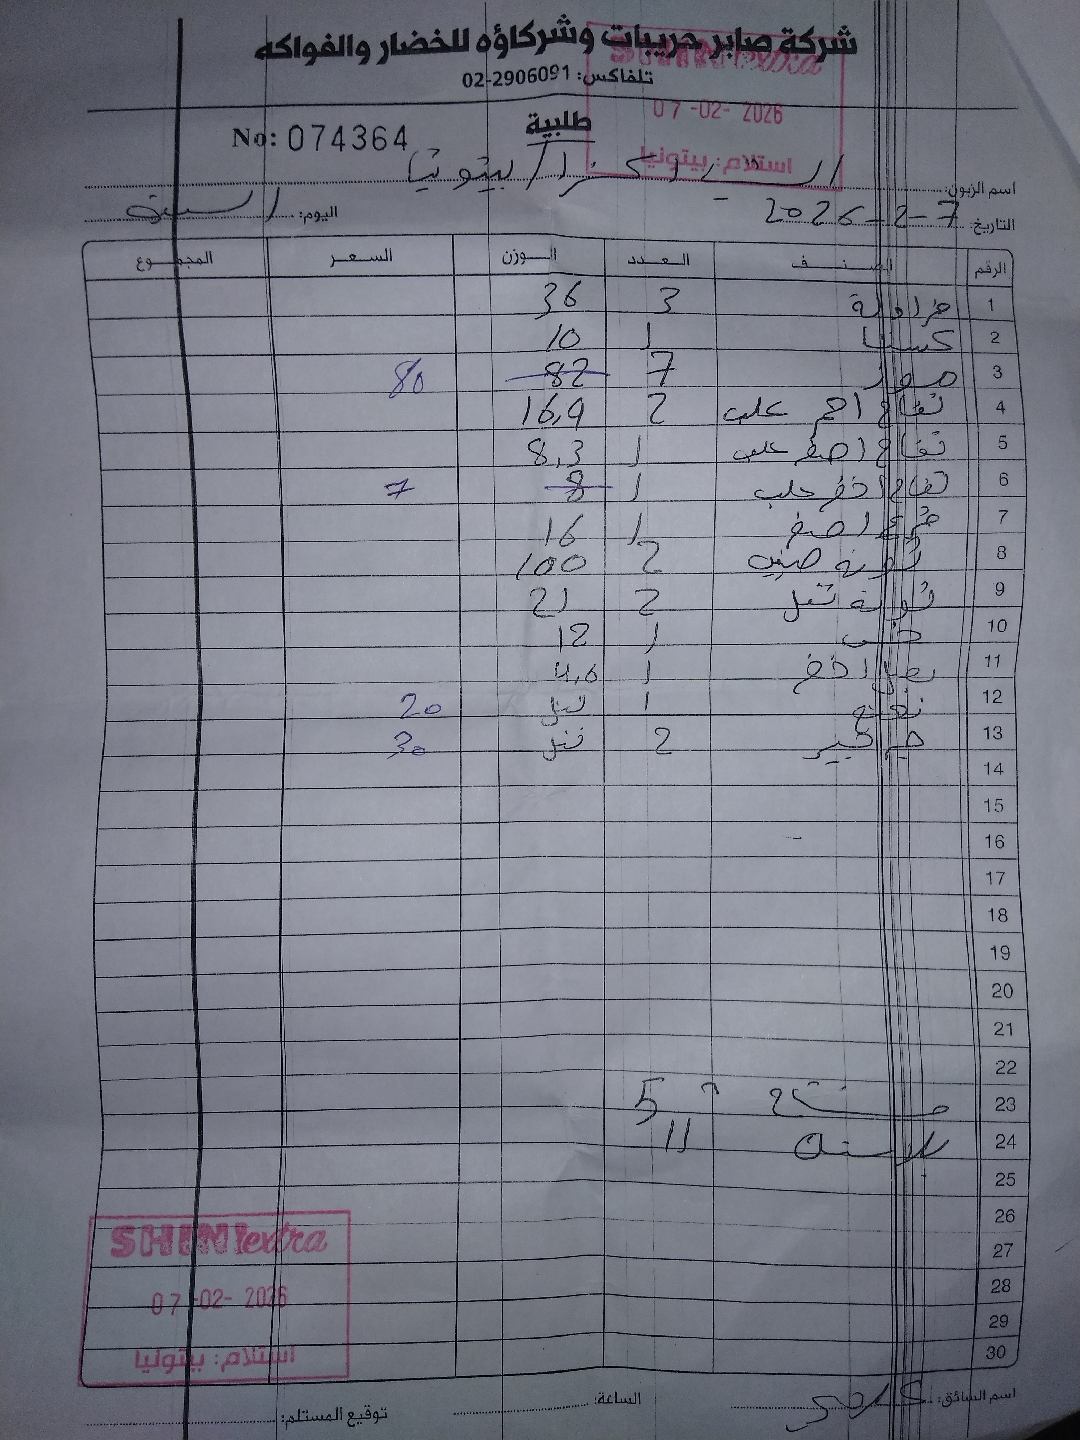 شركة صابر حريبات وشركاؤه للخضار والفواكه
تلفاكس: 02-2906091
SHINI extra
07-02-2026
استلام: بيتونيا
طلبية
No: 074364
اسم الزبون: اكسترا / بيتونيا
التاريخ: 7-2-2026 اليوم: السبت
الرقم الصنف العدد الوزن السعر المجموع
1 فراولة 3 36
2 كستنا 1 10
3 موز 7 82 80
4 تفاح احمر علب 2 16,9
5 تفاح اصفر علب 1 8,3
6 تفاح اخضر علب 1 8 7
7 اصفر 1 16
8 2 100
9 2 21
10 خس 1 12
11 بصل اخضر 1 4,6
12 نعنع 1 20
13 2 30
14
15
16
17
18
19
20
21
22
23 5
24 11
25
26
27
28
29
30
SHINI extra
07-02-2026
استلام: بيتونيا
اسم السائق: الساعة: توقيع المستلم: